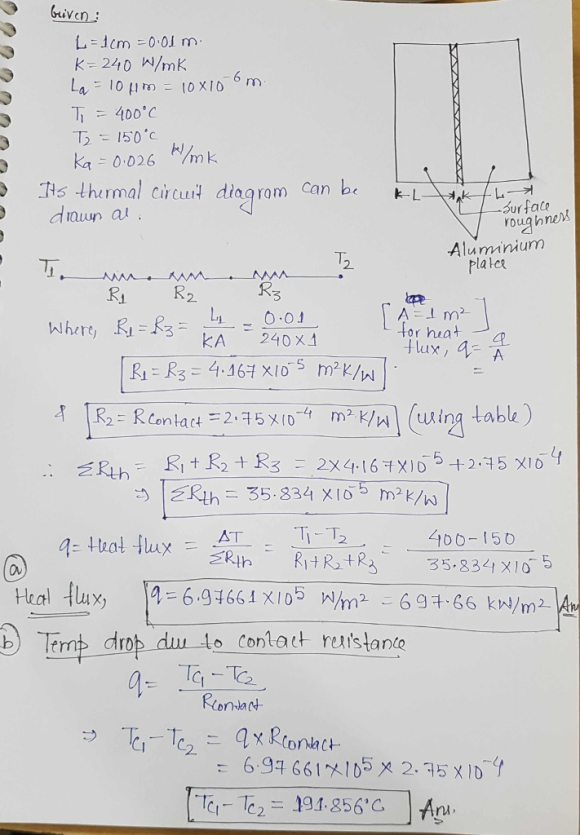 Given :
L = 1cm = 0.01 m.
K = 240 W/mK
La = 10 μm = 10×10⁻⁶ m.
T₁ = 400°C
T₂ = 150°C
Ka = 0.026 W/mK
Its thermal circuit diagram can be
drawn as.
L
L
Surface
roughness
Aluminium
plates
T₁
T₂
R₁ R₂ R₃
Where, R₁ = R₃ = L₁/KA = 0.01/240×1
[A = 1 m² for heat flux, q = q/A =]
R₁ = R₃ = 4.167×10⁻⁵ m²K/W.
& R₂ = Rcontact = 2.75×10⁻⁴ m²K/W (using table)
∴ ΣRth = R₁ + R₂ + R₃ = 2×4.167×10⁻⁵ + 2.75×10⁻⁴
⇒ ΣRth = 35.834×10⁻⁵ m²K/W
q = Heat flux = ΔT/ΣRth = T₁-T₂/R₁+R₂+R₃ = 400-150/35.834×10⁻⁵
(a)
Heat flux, q = 6.97661×10⁵ W/m² = 697.66 kW/m² An
(b) Temp drop due to contact resistance
q = TC₁-TC₂/Rcontact
⇒ TC₁-TC₂ = q×Rcontact
= 6.97661×10⁵×2.75×10⁻⁴
TC₁-TC₂ = 191.856°C An.